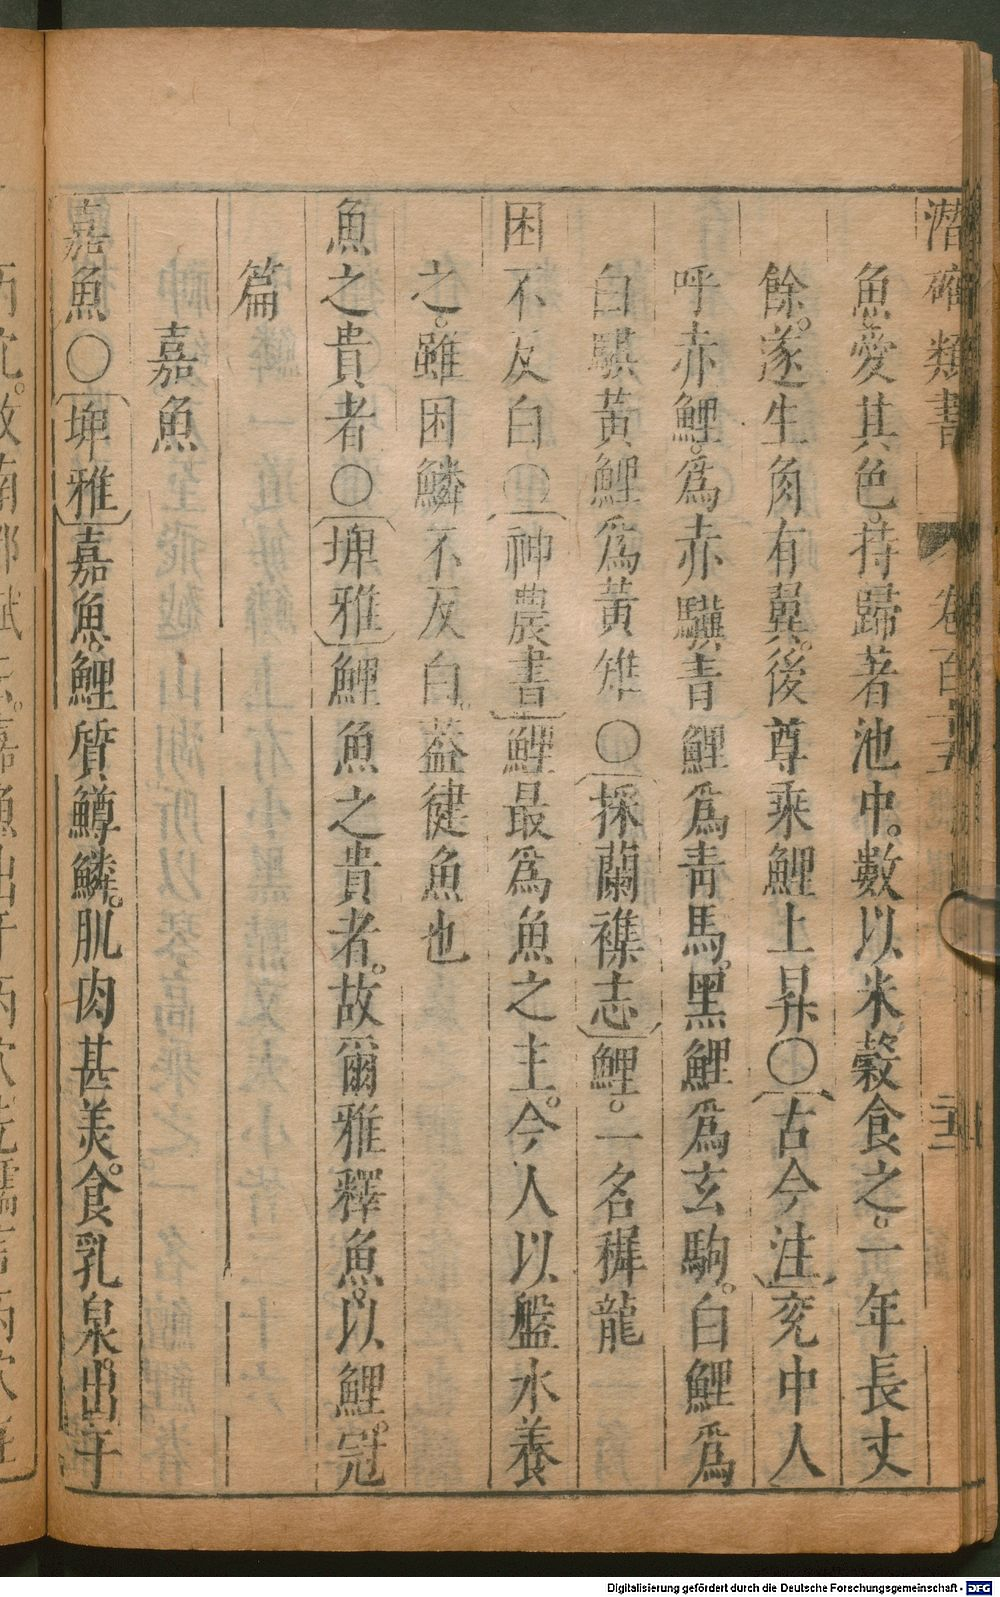 潛確類書 卷百 二十三
魚愛其色。持歸著池中。數以米穀食之。一年長丈
餘。遂生角有翼。後尊乘鯉上昇〇古今注兖中人
呼赤鯉。爲赤驥。青鯉爲靑馬。黑鯉爲玄駒。白鯉爲
白騏黃鯉爲黃雉〇採蘭襍志鯉。一名穉龍
困不反白〇神農書鯉最爲魚之主。今人以盤水養
之。雖困鱗不反白。葢健魚也
魚之貴者〇埤雅鯉魚之貴者。故爾雅釋魚。以鯉。冠
篇
嘉魚
嘉魚〇埤雅嘉魚。鯉質鱒鱗。肌肉甚美。食乳泉。出于
Digitalisierung gefördert durch die Deutsche Forschungsgemeinschaft - DFG